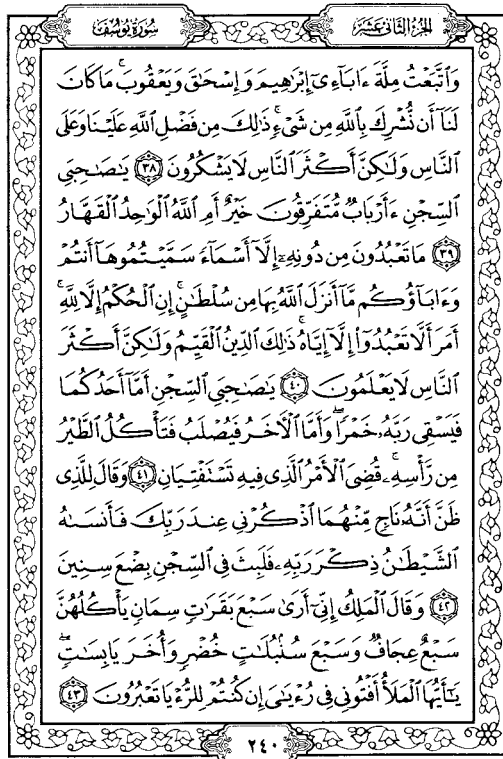 الجزء الثاني عشر
سورة يوسف
وَاتَّبَعْتُ مِلَّةَ ءَابَآءِىٓ إِبْرَٰهِيمَ وَإِسْحَٰقَ وَيَعْقُوبَۚ مَا كَانَ
لَنَآ أَن نُّشْرِكَ بِاللَّهِ مِن شَىْءٍۚ ذَٰلِكَ مِن فَضْلِ اللَّهِ عَلَيْنَا وَعَلَى
النَّاسِ وَلَٰكِنَّ أَكْثَرَ النَّاسِ لَا يَشْكُرُونَ ٣٨ يَٰصَٰحِبَىِ
السِّجْنِ ءَأَرْبَابٌ مُّتَفَرِّقُونَ خَيْرٌ أَمِ اللَّهُ الْوَٰحِدُ الْقَهَّارُ
٣٩ مَا تَعْبُدُونَ مِن دُونِهِۦٓ إِلَّآ أَسْمَآءً سَمَّيْتُمُوهَآ أَنتُمْ
وَءَابَآؤُكُم مَّآ أَنزَلَ اللَّهُ بِهَا مِن سُلْطَٰنٍۚ إِنِ الْحُكْمُ إِلَّا لِلَّهِۚ
أَمَرَ أَلَّا تَعْبُدُوٓا۟ إِلَّآ إِيَّاهُۚ ذَٰلِكَ الدِّينُ الْقَيِّمُ وَلَٰكِنَّ أَكْثَرَ
النَّاسِ لَا يَعْلَمُونَ ٤٠ يَٰصَٰحِبَىِ السِّجْنِ أَمَّآ أَحَدُكُمَا
فَيَسْقِى رَبَّهُۥ خَمْرًاۖ وَأَمَّا الْءَاخَرُ فَيُصْلَبُ فَتَأْكُلُ الطَّيْرُ
مِن رَّأْسِهِۦۚ قُضِىَ الْأَمْرُ الَّذِى فِيهِ تَسْتَفْتِيَانِ ٤١ وَقَالَ لِلَّذِى
ظَنَّ أَنَّهُۥ نَاجٍ مِّنْهُمَا اذْكُرْنِى عِندَ رَبِّكَ فَأَنسَىٰهُ
الشَّيْطَٰنُ ذِكْرَ رَبِّهِۦ فَلَبِثَ فِى السِّجْنِ بِضْعَ سِنِينَ
٤٢ وَقَالَ الْمَلِكُ إِنِّىٓ أَرَىٰ سَبْعَ بَقَرَٰتٍ سِمَانٍ يَأْكُلُهُنَّ
سَبْعٌ عِجَافٌ وَسَبْعَ سُنۢبُلَٰتٍ خُضْرٍ وَأُخَرَ يَابِسَٰتٍۖ
يَٰٓأَيُّهَا الْمَلَأُ أَفْتُونِى فِى رُءْيَٰىَ إِن كُنتُمْ لِلرُّءْيَا تَعْبُرُونَ ٤٣
٢٤٠